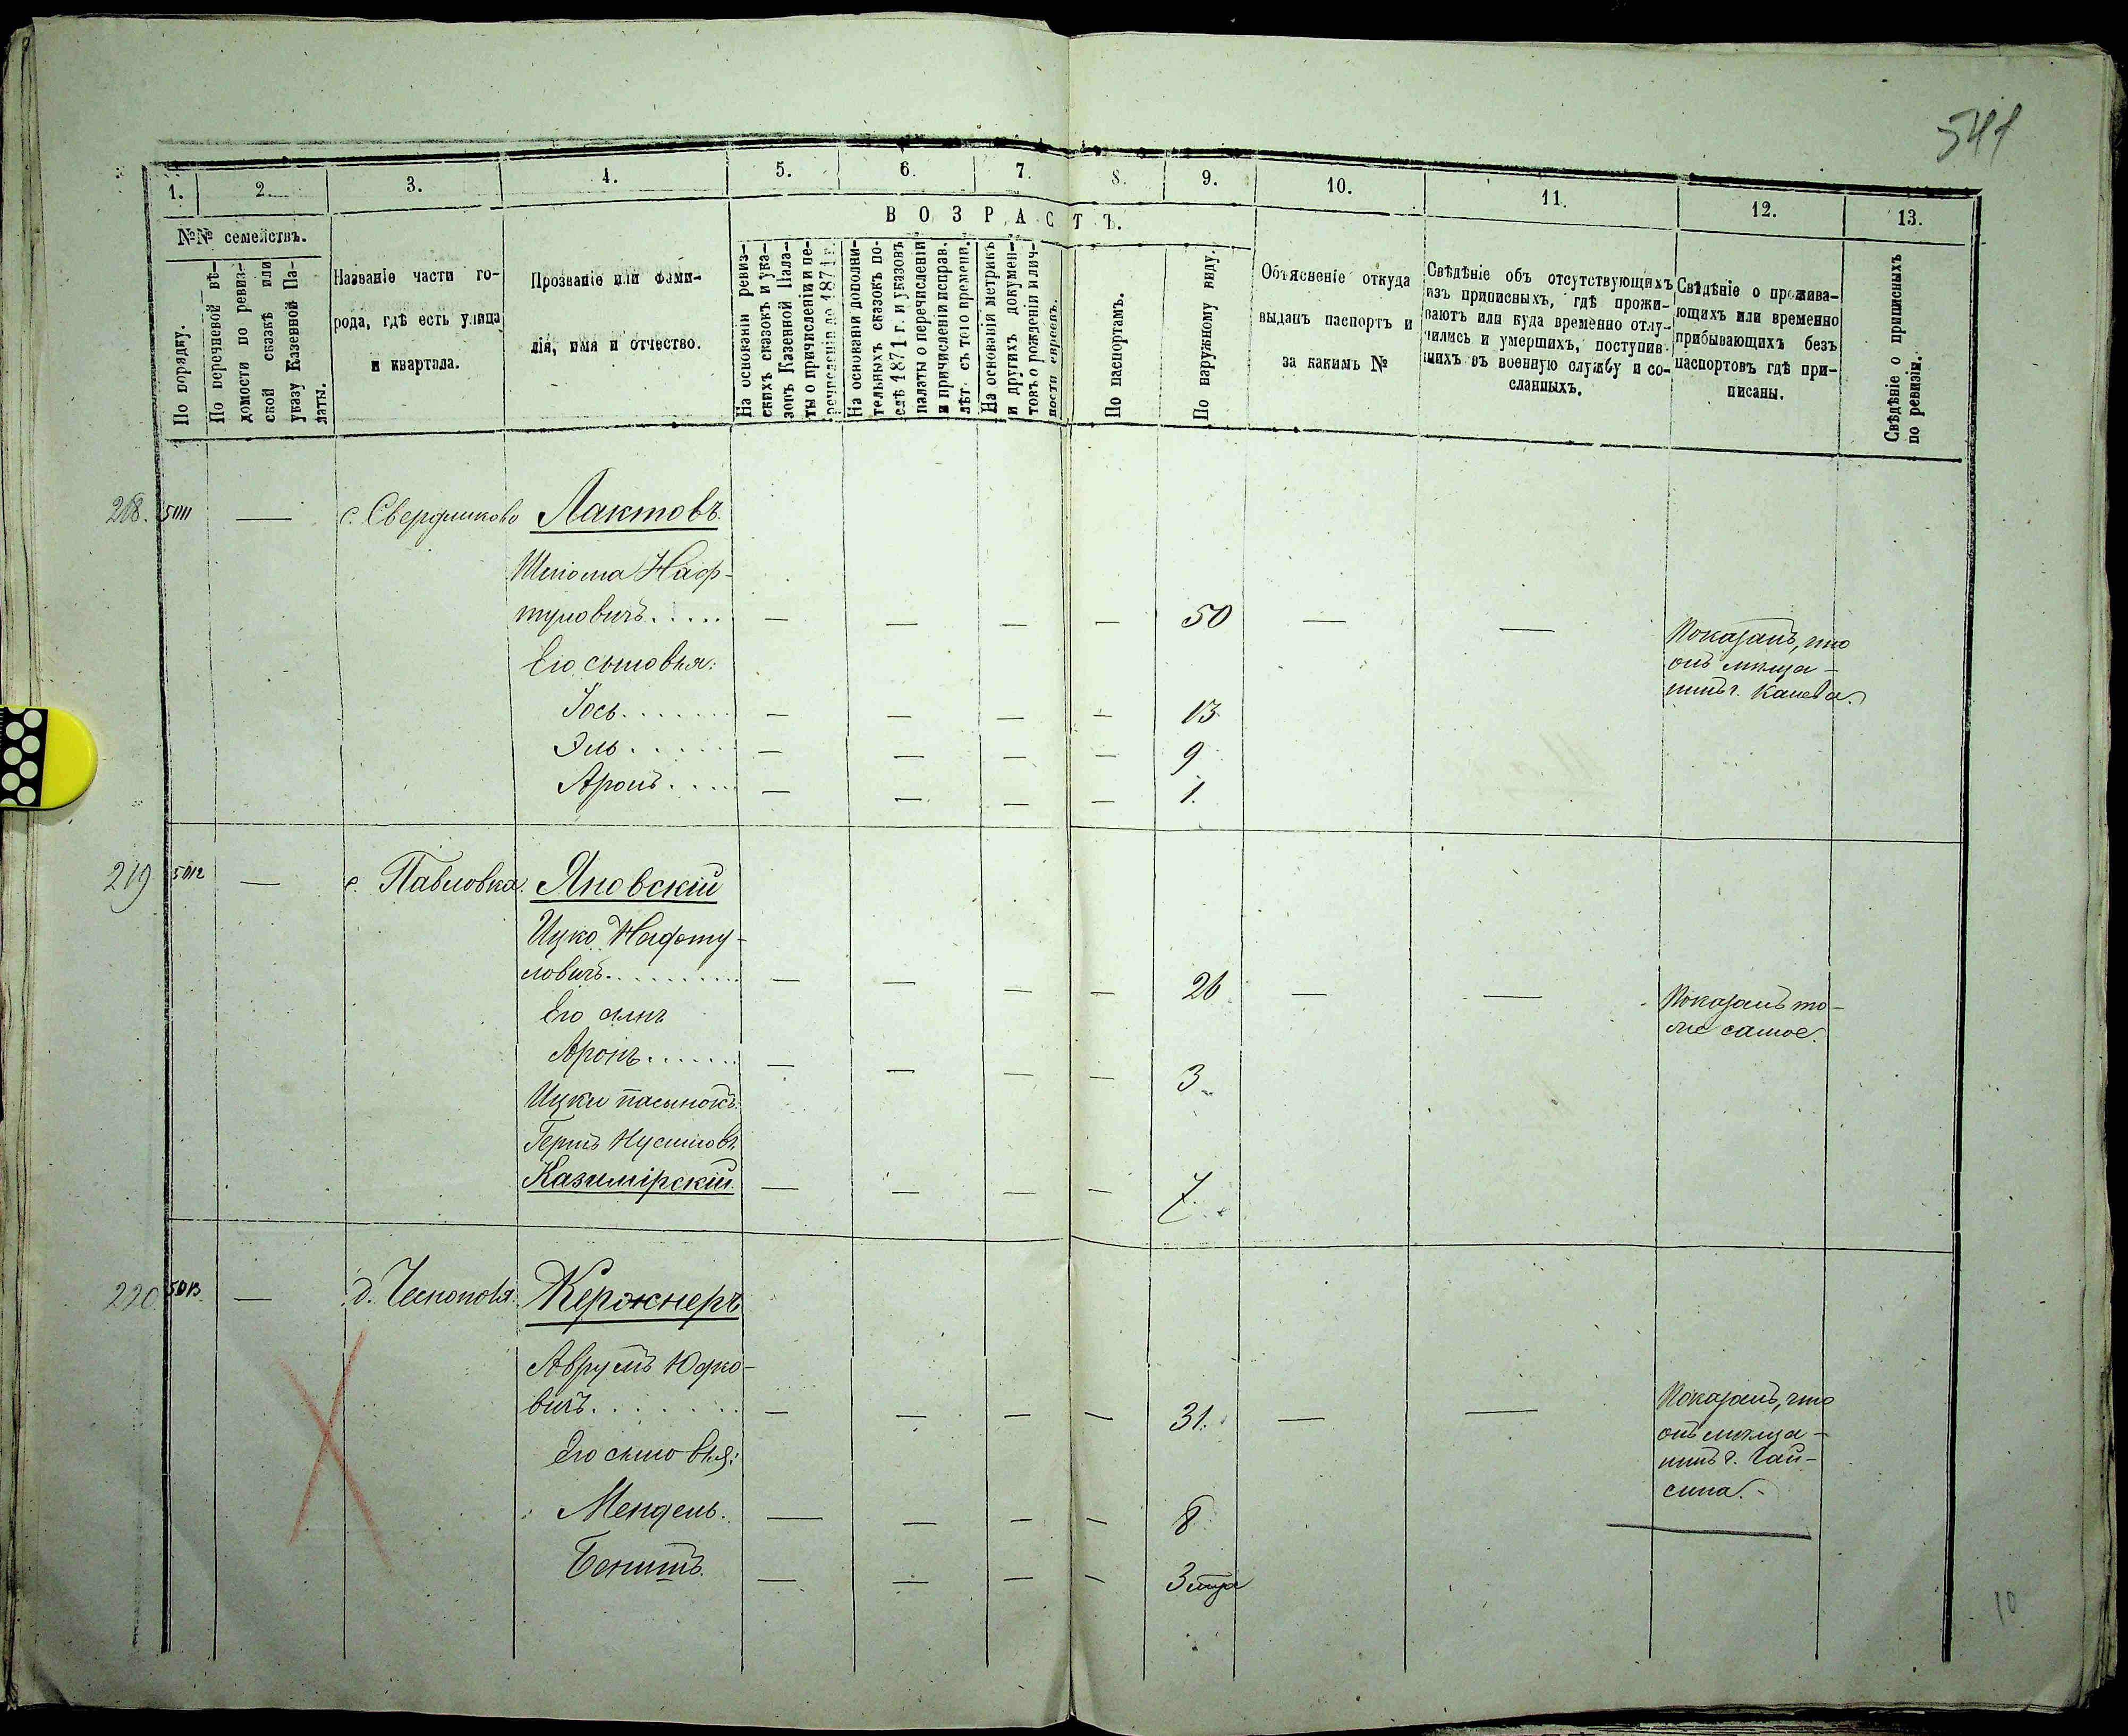 541
1. 2. 3. 4. 5. 6. 7. 8. 9. 10. 11. 12. 13.
№№ семействъ.
По порядку.
По перечневой вѣ-
домости по ревиз-
ской сказкѣ или
указу Казенной Па-
латы.
Названіе части го-
рода, гдѣ есть улица
и квартала.
Прозваніе или фами-
лія, имя и отчество.
ВОЗРАСТЪ.
На основаніи ревиз-
скихъ сказокъ и ука-
зовъ Казенной Пала-
ты о причисленіи и пе-
речисленіи до 1871 г.
На основаніи дополни-
тельныхъ сказокъ по-
слѣ 1871 г. и указовъ
палаты о перечисленіи
и причисленіи исправ.
лѣт. съ того времени.
На основаніи метрикъ
и другихъ докумен-
товъ о рожденіи и лич-
ности евреевъ.
По паспортамъ.
По наружному виду.
Объясненіе откуда
выданъ паспортъ и
за какимъ №
Свѣдѣніе объ отсутствующихъ
изъ приписныхъ, гдѣ прожи-
ваютъ или куда временно отлу-
чились и умершихъ, поступив-
шихъ въ военную службу и со-
сланныхъ.
Свѣдѣніе о прожива-
ющихъ или временно
прибывающихъ безъ
паспортовъ гдѣ при-
писаны.
Свѣдѣніе о приписныхъ
по ревизіи.
218. 5011 — с. Свердликово Лактовъ.
Шлиома Наф-
туловичъ..... — — — — 50 — —
Показалъ, что
онъ мѣща-
нинъ г. Канева.
Его сыновья:
Іось....... — — — — 13.
Эль...... — — — — 9
Аронъ..... — — — — 1.
219 5012 — с. Павловка. Яновскій
Ицко Нафту-
ловичъ......... — — — — 26 — —
Показалъ то-
же самое.
Его сынъ
Аронъ....... — — — — 3
Ицки пасынокъ:
Гершъ Нусимовъ
Казимірскій. — — — — 7.
220 5013. — д. Чеснополя. Кержнеръ
Аврумъ Юдко-
вичъ....... — — — — 31. — —
Показалъ, что
онъ мѣща-
нинъ г. Гай-
сина.
Его сыновья:
Мендель. — — — — 8
— — — — 3
10